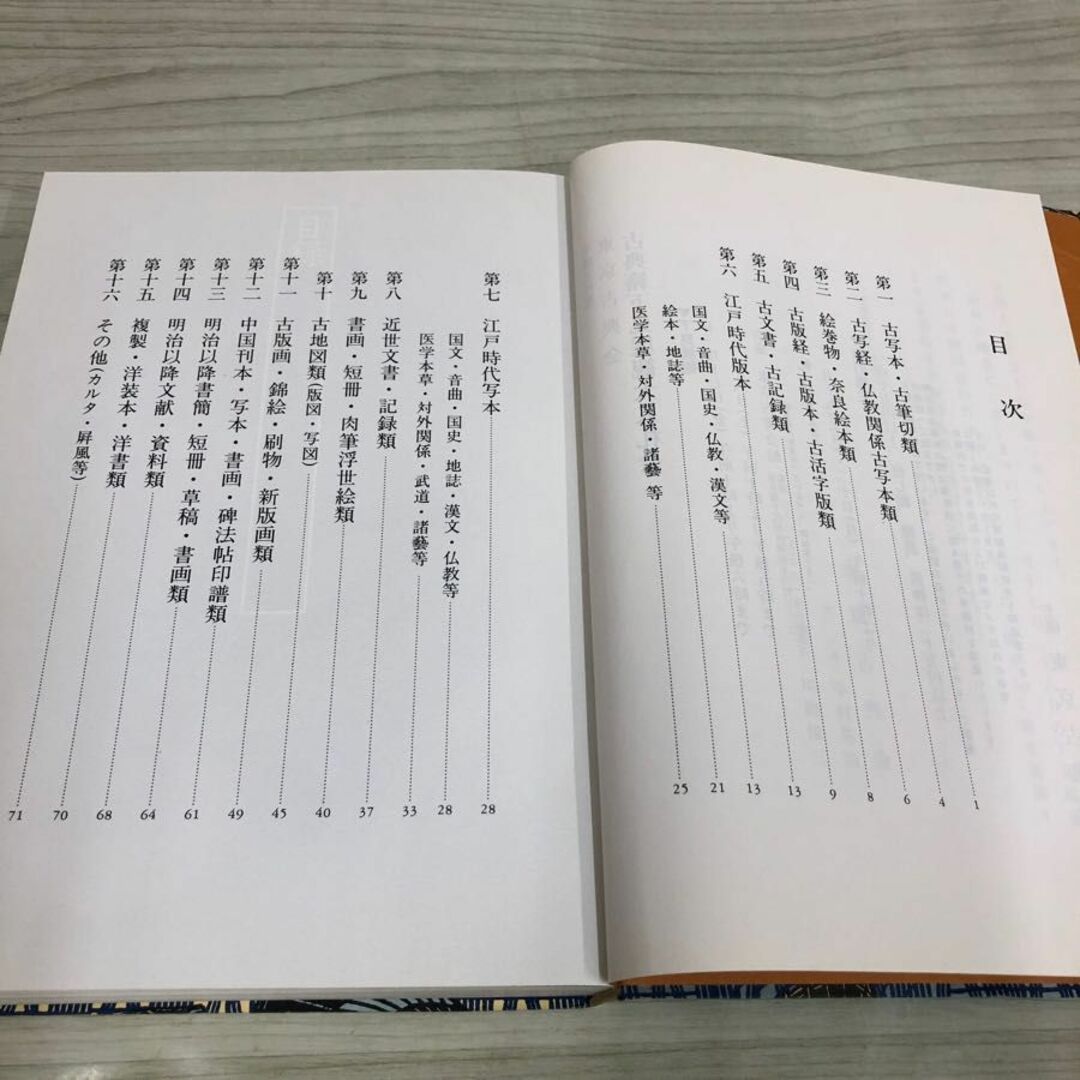 目次
第一 古写本・古筆切類 1
第二 古写経・仏教関係古写本類 4
第三 絵巻物・奈良絵本類 6
第四 古版経・古版本・古活字版類 8
第五 古文書・古記録類 9
第六 江戸時代版本 13
国文・音曲・国史・仏教・漢文等 13
絵本・地誌等 21
医学本草・対外関係・諸藝 等 25
第七 江戸時代写本 28
国文・音曲・国史・地誌・漢文・仏教等 28
医学本草・対外関係・武道・諸藝等 33
第八 近世文書・記録類 37
第九 書画・短冊・肉筆浮世絵類 40
第十 古地図類(版図・写図) 45
第十一 古版画・錦絵・刷物・新版画類 49
第十二 中国刊本・写本・書画・碑法帖印譜類 61
第十三 明治以降書簡・短冊・草稿・書画類 64
第十四 明治以降文献・資料類 68
第十五 複製・洋装本・洋書類 70
第十六 その他(カルタ・屛風等) 71